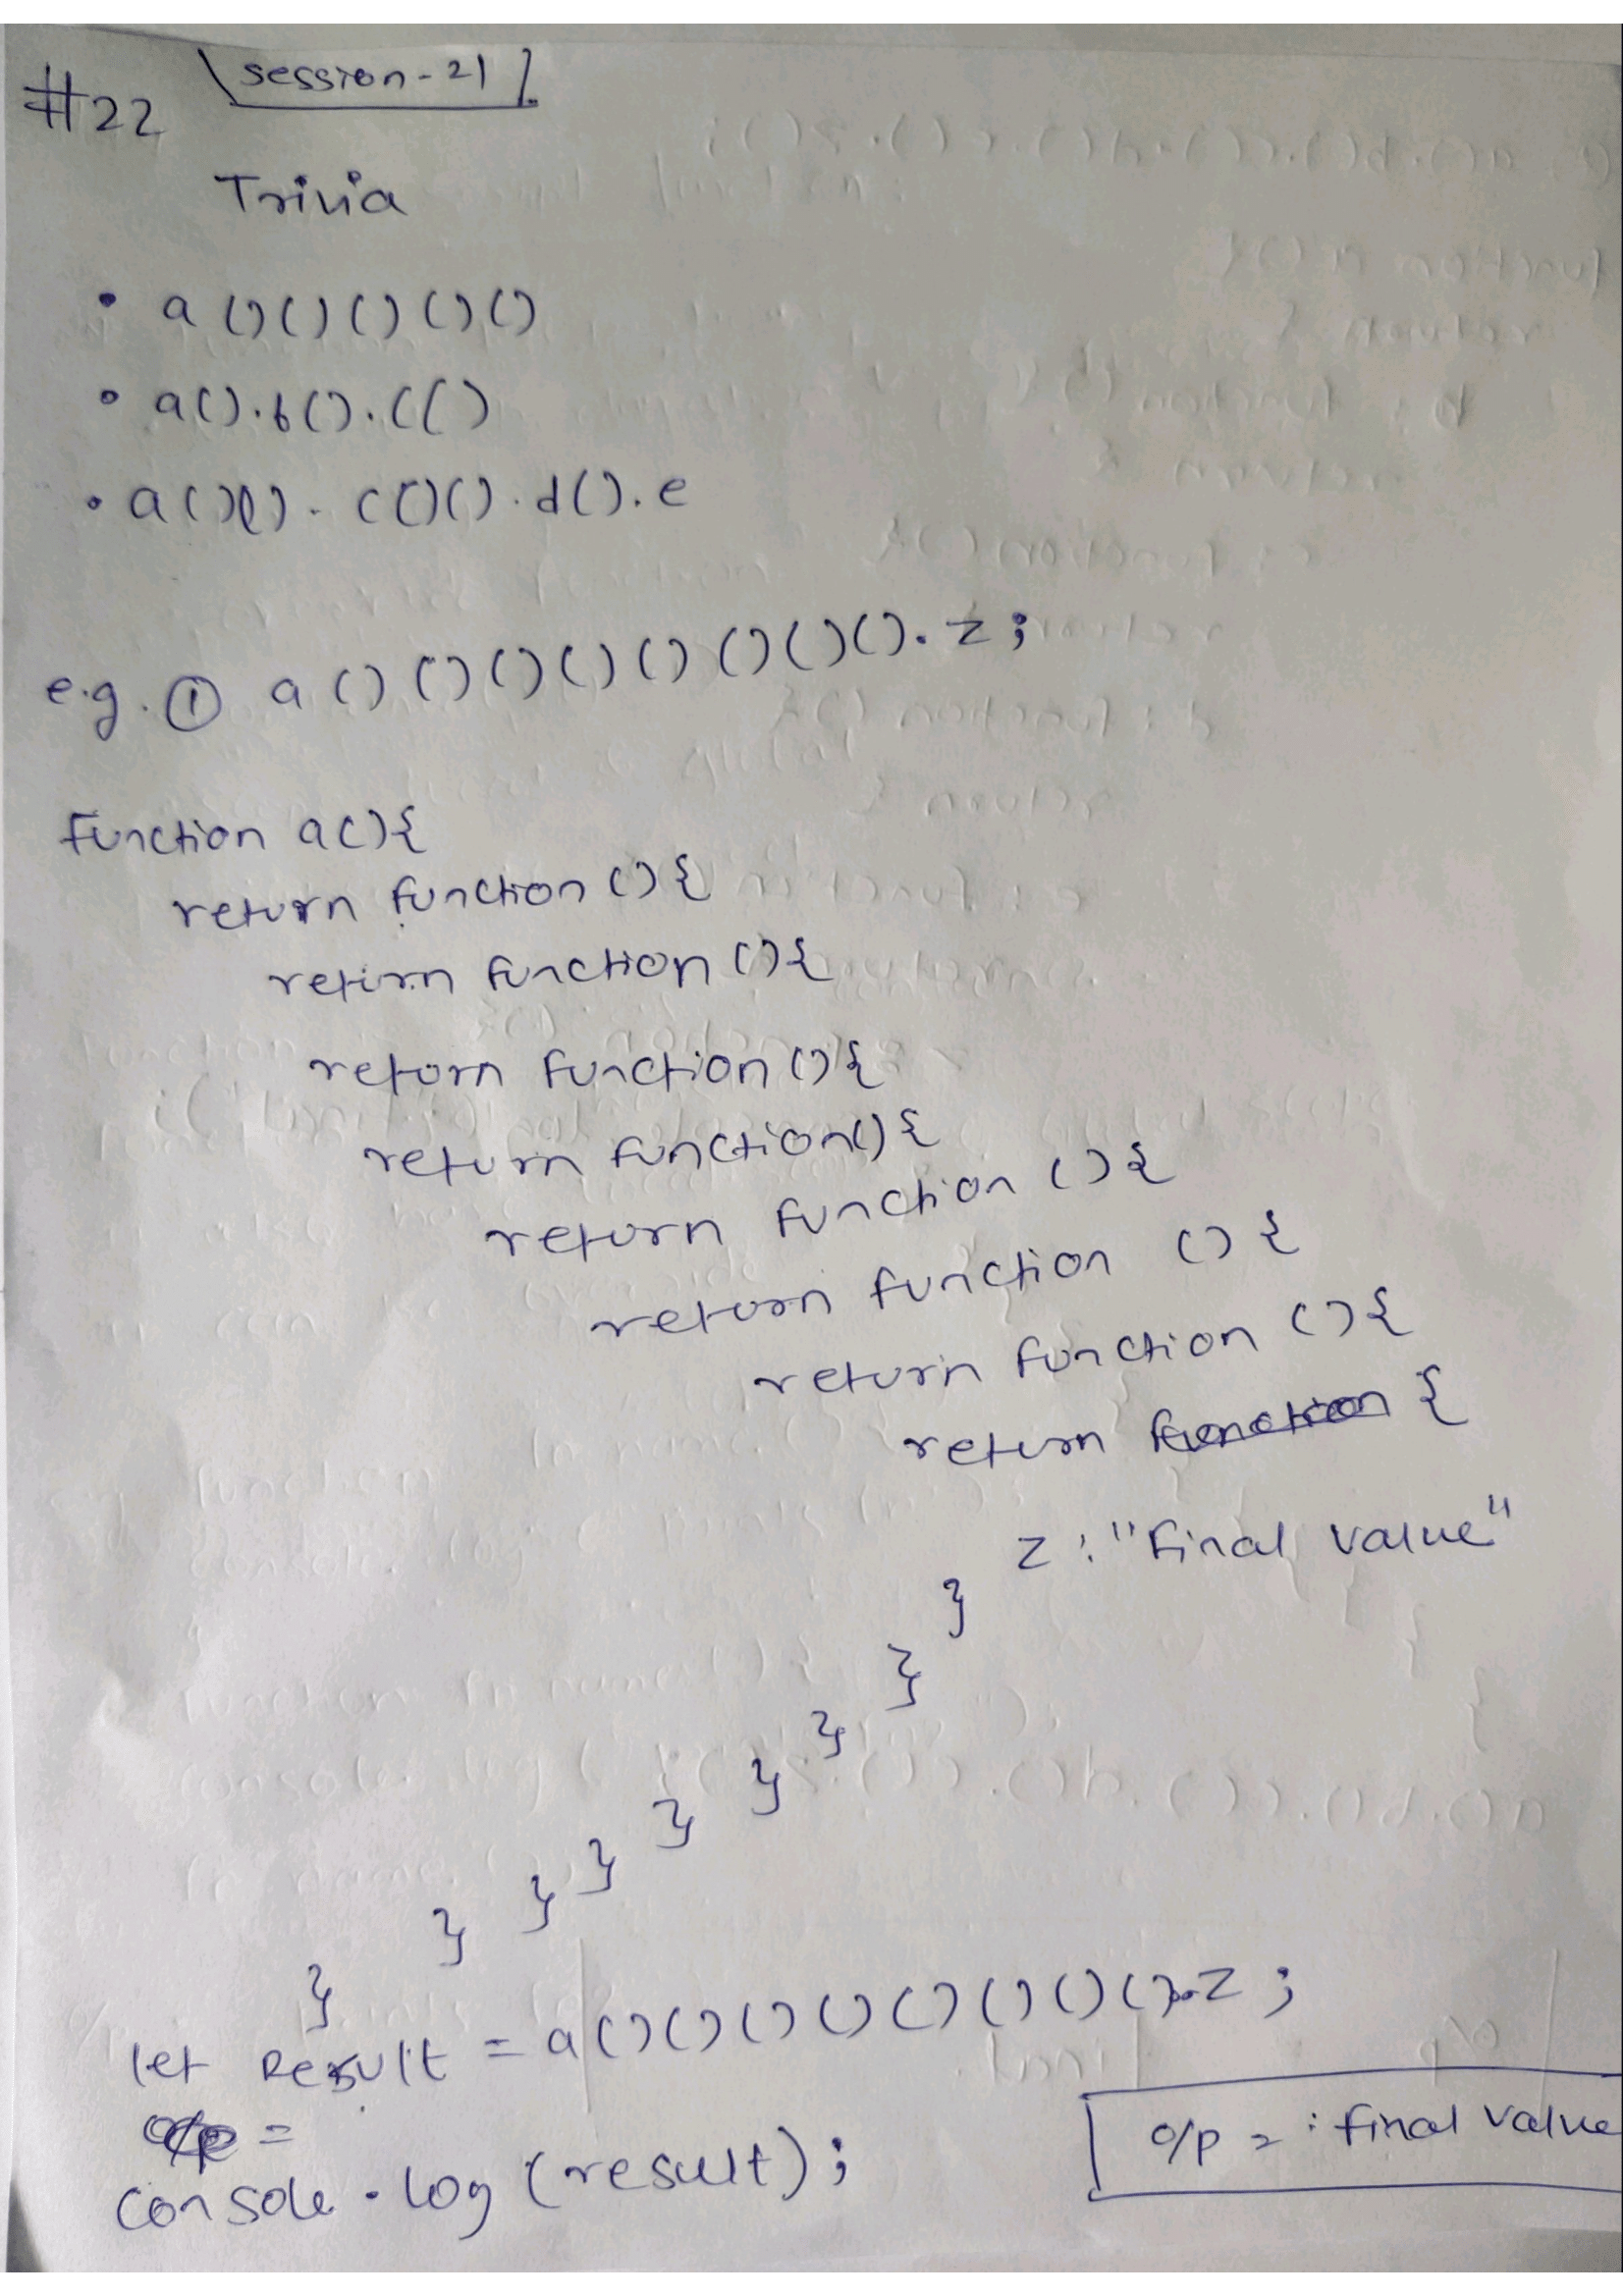 #22 session-21
Trivia
• a()()()()()
• a().b().c()
• a()().c()().d().e
e.g. ① a()()()()()()()().z;
function a(){
return function(){
return function(){
return function(){
return function(){
return function(){
return function(){
return function(){
return {
z: "Final value"
}
}
}
}
}
}
}
}
}
let Result = a()()()()()()()().z;
console.log(result);
o/p = : final value